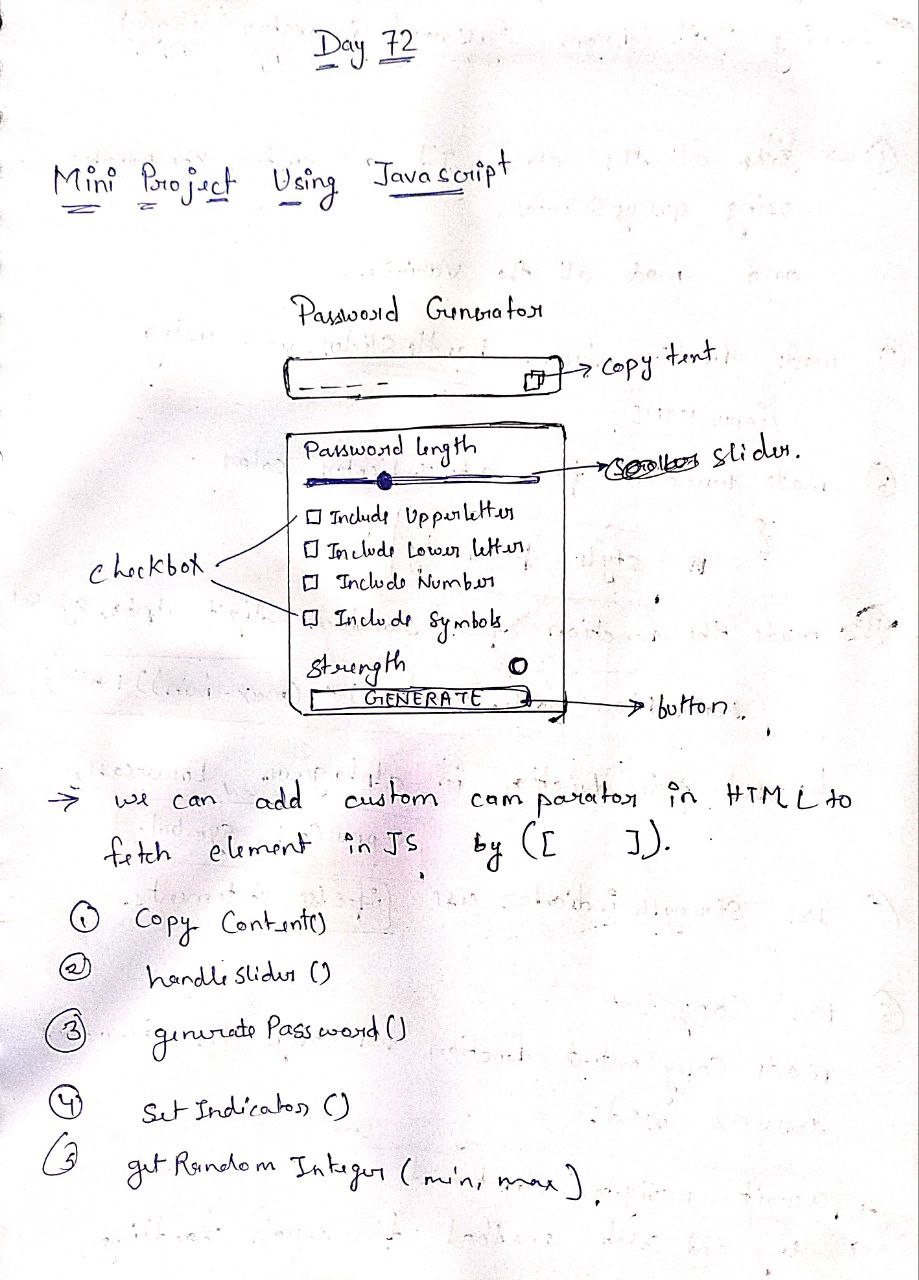 Day 72
Mini Project Using Javascript
Password Generator
copy text
Password length
slider.
Include Upperletter
Include Lower letter
checkbox
Include Number
Include Symbols.
Strength
GENERATE
button
→ we can add custom comparator in HTML to
fetch element in JS by ([ ]).
① Copy Content()
② handle slider ()
③ generate Password()
④ Set Indicator ()
⑤ get Random Integer (min, max).